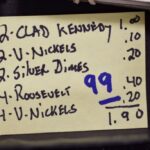 2·CLAD KENNEDY 1.00
2·V. NICKELS .10
2·SILVER DIMES .20
4·ROOSEVELT 99 .40
4·V. NICKELS .20
1.90